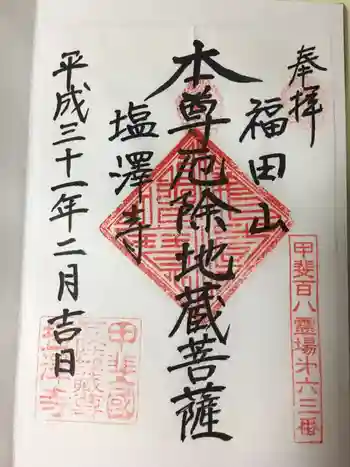 奉拝
甲斐百八霊場第六三番
福田山
本尊厄除地蔵菩薩
塩澤寺
平成三十一年二月吉日